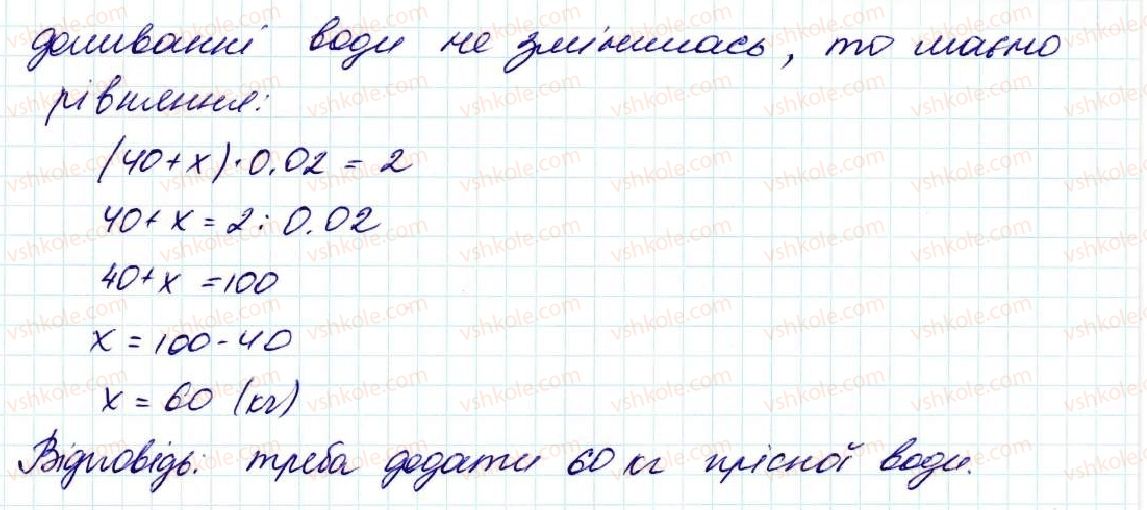 доливанні води не змінилась, то маємо
рівняння:
(40+x)·0.02 = 2
40+x = 2:0.02
40+x =100
x =100-40
x = 60 (кг)
Відповідь: треба додати 60 кг прісної води.